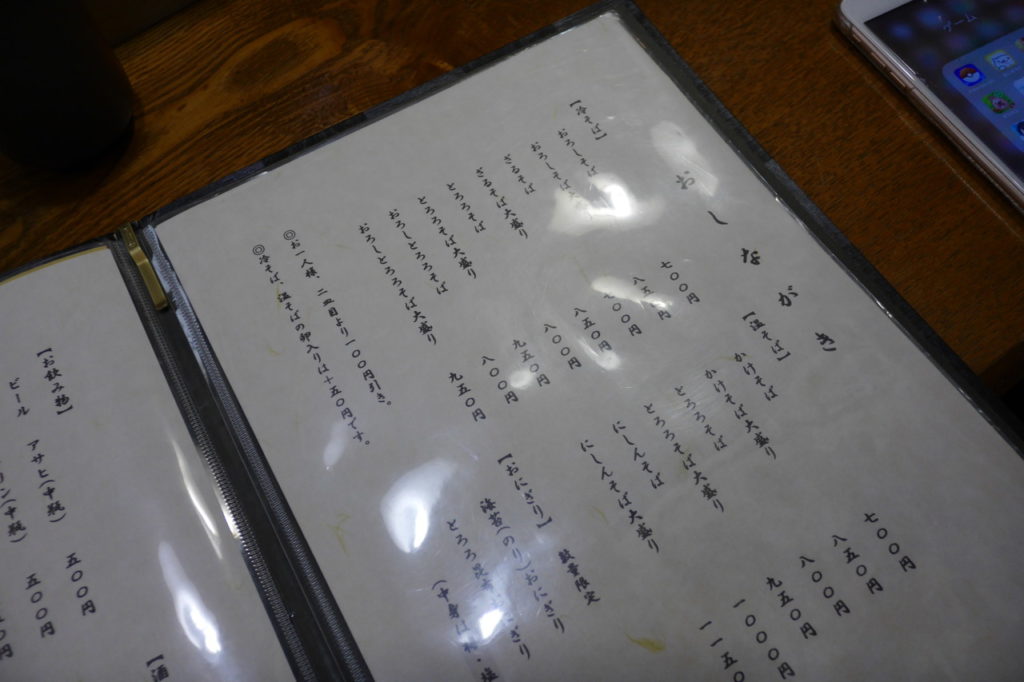 おしながき
【冷そば】
おろしそば 七〇〇円
おろしそば 八五〇円
ざるそば 七〇〇円
ざるそば大盛り 八五〇円
とろろそば 八〇〇円
とろろそば大盛り 九五〇円
おろしとろろそば 八〇〇円
おろしとろろそば大盛り 九五〇円
◎お一人様 二皿目より一〇〇円引き。
◎冷そば、温そばの卵入りは+五〇円です。
【温そば】
かけそば 七〇〇円
かけそば大盛り 八五〇円
とろろそば 八〇〇円
とろろそば大盛り 九五〇円
にしんそば 一〇〇〇円
にしんそば大盛り 一一五〇
【おにぎり】 数量限定
海苔(のり)おにぎり
とろろ昆 にぎり
(中身は ・塩
【お飲み物】
ビール アサヒ(中瓶) 五〇〇円
リン(中瓶) 五〇〇円
〇円
【酒
ゲーム